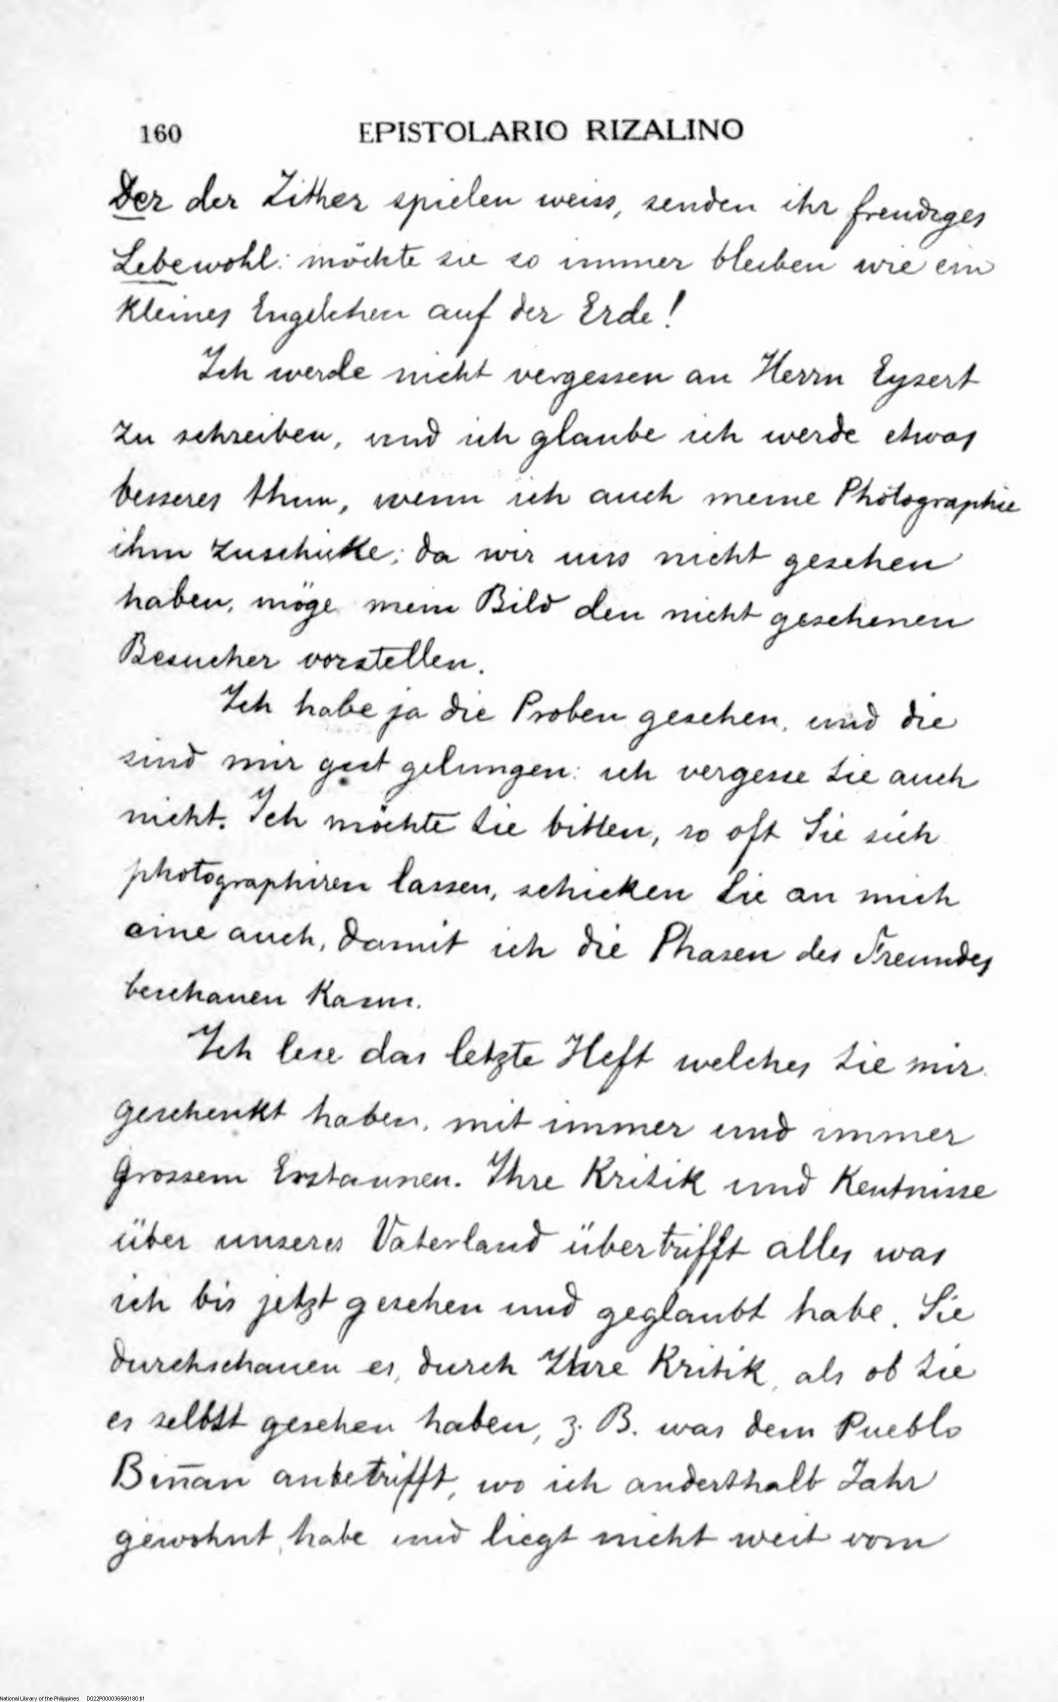 160 EPISTOLARIO RIZALINO
Der der Zither spielen weiss, senden ihr freudiges
Lebewohl: möchte sie so immer bleiben wie ein
kleines Engelchen auf der Erde!
Ich werde nicht vergessen an Herrn Eysert
zu schreiben, und ich glaube ich werde etwas
besseres thun, wenn ich auch meine Photographie
ihm zuschicke; da wir uns nicht gesehen
haben, möge mein Bild den nicht gesehenen
Besucher vorstellen.
Ich habe ja die Proben gesehen, und die
sind mir gut gelungen: ich vergesse Sie auch
nicht. Ich möchte Sie bitten, so oft Sie sich
photographiren lassen, schicken Sie an mich
eine auch, damit ich die Phasen des Freundes
beschauen kann.
Ich lese das letzte Heft welches Sie mir
geschenkt haben, mit immer und immer
grossem Erstaunen. Ihre Kritik und Kentnisse
über unseres Vaterland übertrifft alles was
ich bis jetzt gesehen und geglaubt habe. Sie
durchschauen es, durch Ihre Kritik, als ob Sie
es selbst gesehen haben, z. B. was dem Pueblo
Biñan anbetrifft, wo ich anderthalb Jahr
gewohnt habe und liegt nicht weit vom
National Library of the Philippines